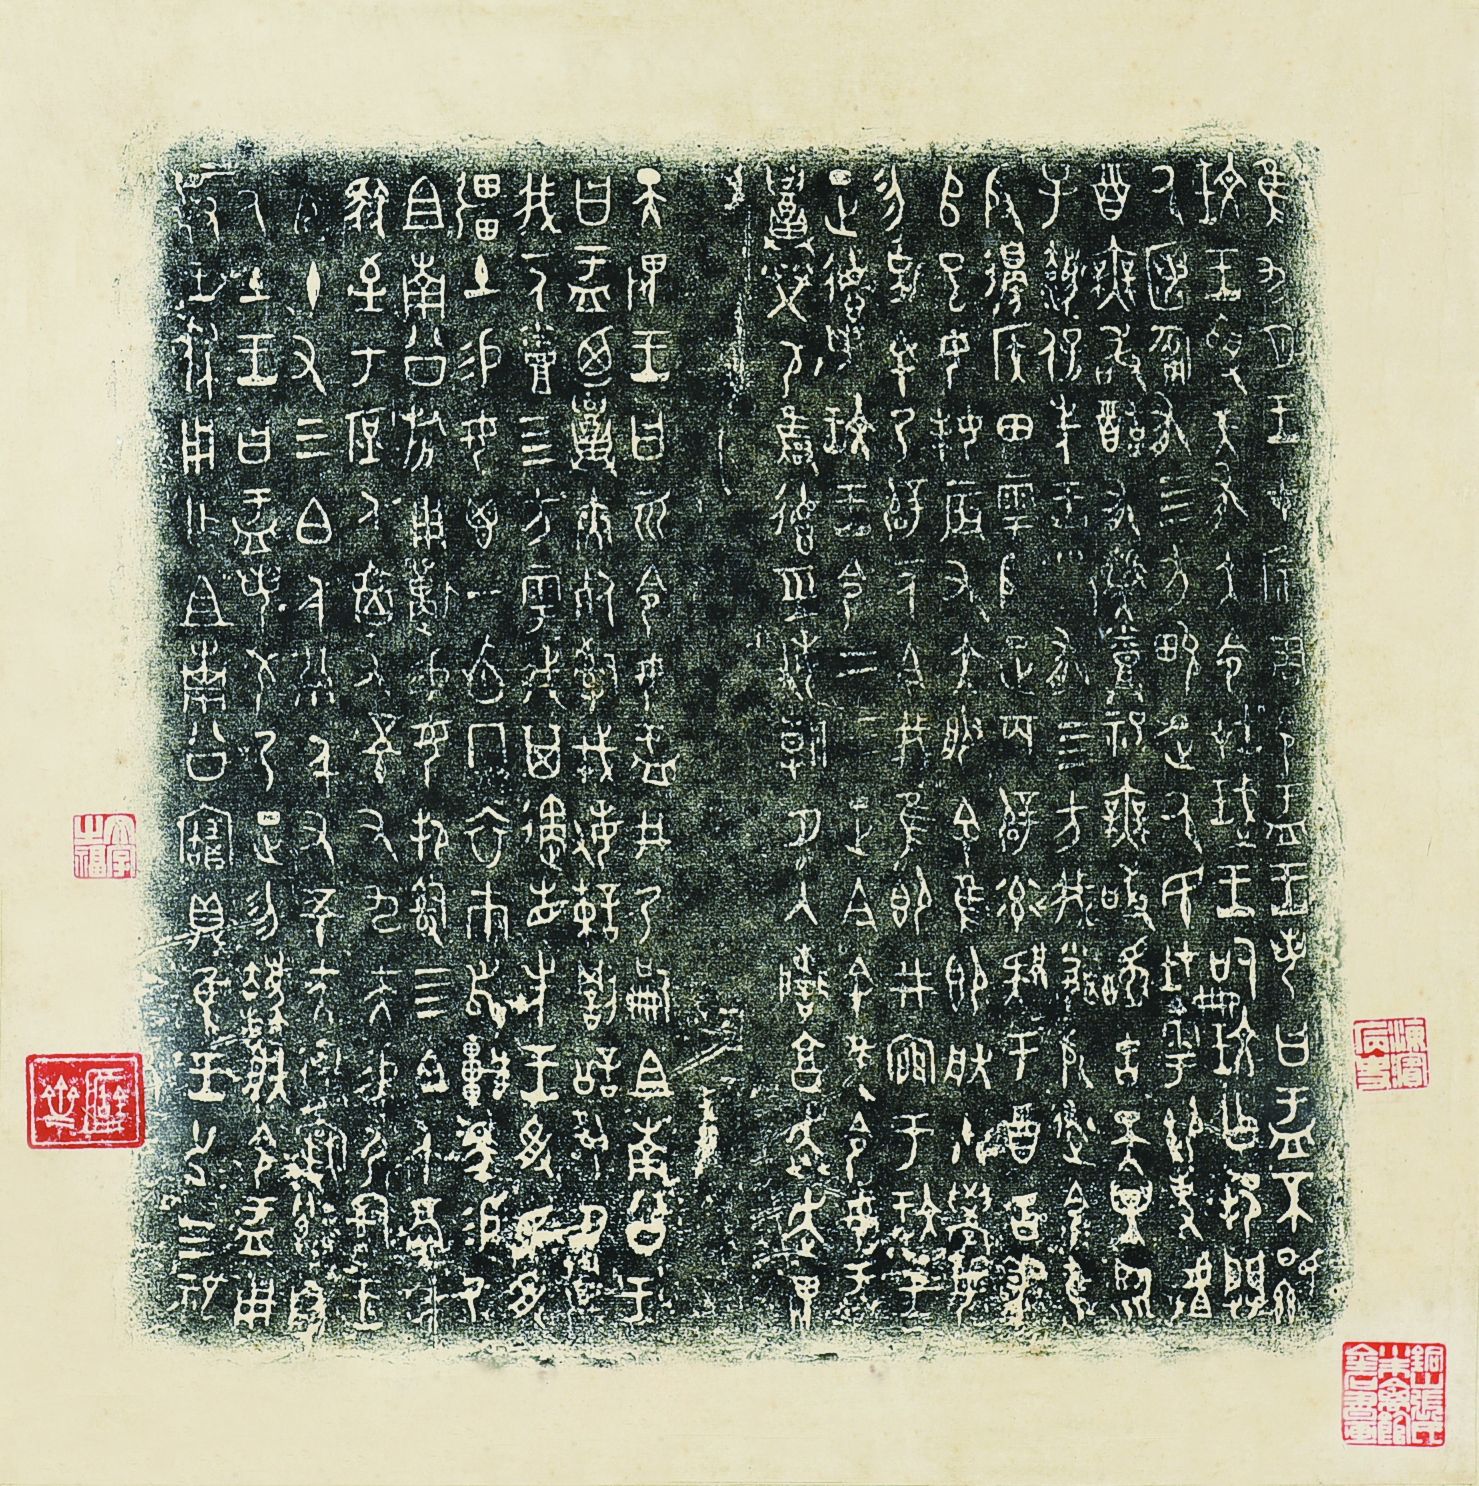 隹九月王才宗周令盂王若曰盂不顯
玟王受天有大令在珷王嗣玟乍邦闢
厥匿匍有四方畯正厥民在雩御事䖒
酉無敢酖有祡烝祀無敢擾古天異臨
子灋保先王有四方我聞殷述令隹
殷邊侯田雩殷正百辟率肄于酉古喪
𠂤已女妹辰有大服余隹即朕小學女
勿剋余乃辟一人今我隹即井㐭于玟王
正德若玟王令二三正今余隹令女盂
召榮敬雍德巠敏朝夕入讕享奔走畏
天畏王曰而令女盂井乃嗣且南公王
曰盂廼召夾死司戎敏諫罰訟夙夕召
我一人烝四方雩我其遹省先王受民受
疆土易女鬯一卣冂衣巿舄車馬易乃
且南公旂用狩易女邦司四白人鬲自
馭至于庶人六百又五十又九夫易尸司
王臣十又三白人鬲千又五十夫自
厥土王曰盂若敬乃正勿灋朕令盂用
對王休用乍且南公寶鼎隹王廿又三祀